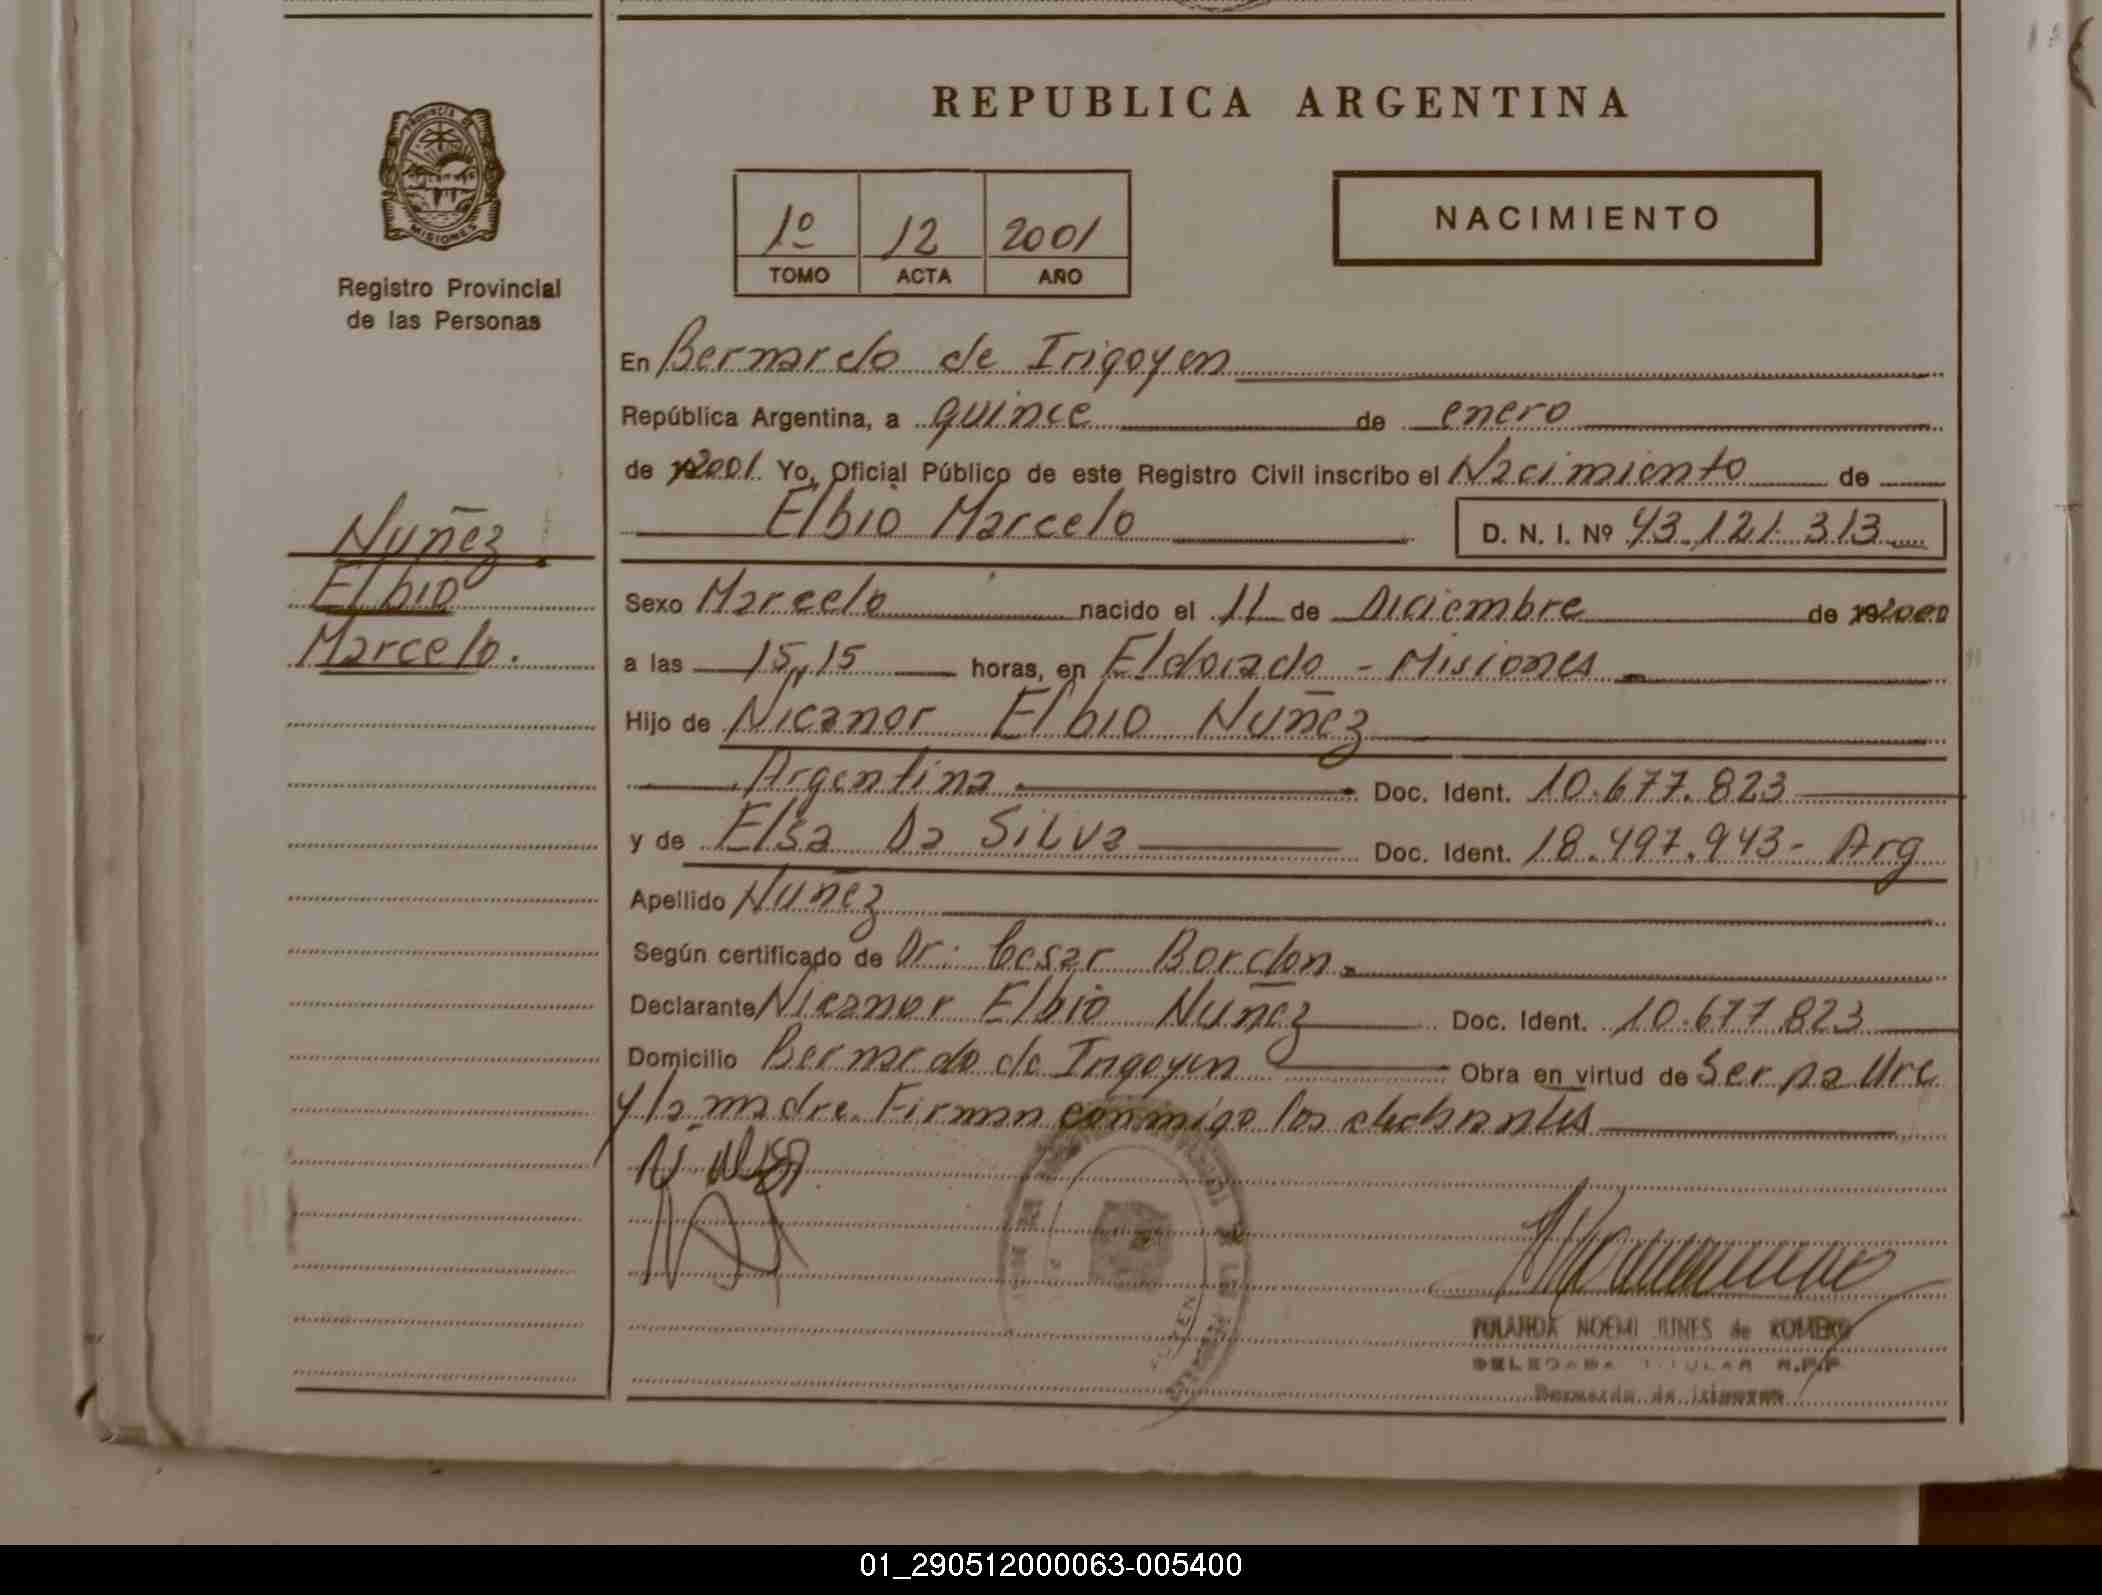 REPUBLICA ARGENTINA
PROVINCIA DE
MISIONES
Registro Provincial
de las Personas
1º 12 2001
TOMO ACTA AÑO
NACIMIENTO
En Bernardo de Irigoyen
República Argentina, a quince de enero
de 2001. Yo, Oficial Público de este Registro Civil inscribo el Nacimiento de
Elbio Marcelo D. N. I. Nº 43.121.313
Nuñez
Elbio
Marcelo.
Sexo Marcelo nacido el 11 de Diciembre de 2000
a las 15,,15 horas, en Eldorado - Misiones
Hijo de Nicanor Elbio Nuñez
Argentina Doc. Ident. 10.677.823
y de Elsa Da Silva Doc. Ident. 18.497.943- Arg
Apellido Nuñez
Según certificado de Dr. Cesar Bordon
Declarante Nicanor Elbio Nuñez Doc. Ident. 10.677.823
Domicilio Bernardo de Irigoyen Obra en virtud de Ser
y la madre. Firman conmigo los
YOLANDA NOEMI JUNES de ROMERO
DELEGADA TITULAR R.P.P
Bernardo de Irigoyen
01_290512000063-005400